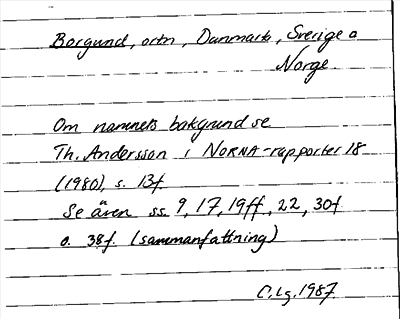 Borgund, ortn, Danmark, Sverige o
Norge.
Om namnets bakgrund se
Th. Andersson i NORNA-rapporter 18
(1980), s. 13f.
Se även ss. 9, 17, 19ff., 22, 30f.
o. 38f. (sammanfattning)
C.Lg. 1987